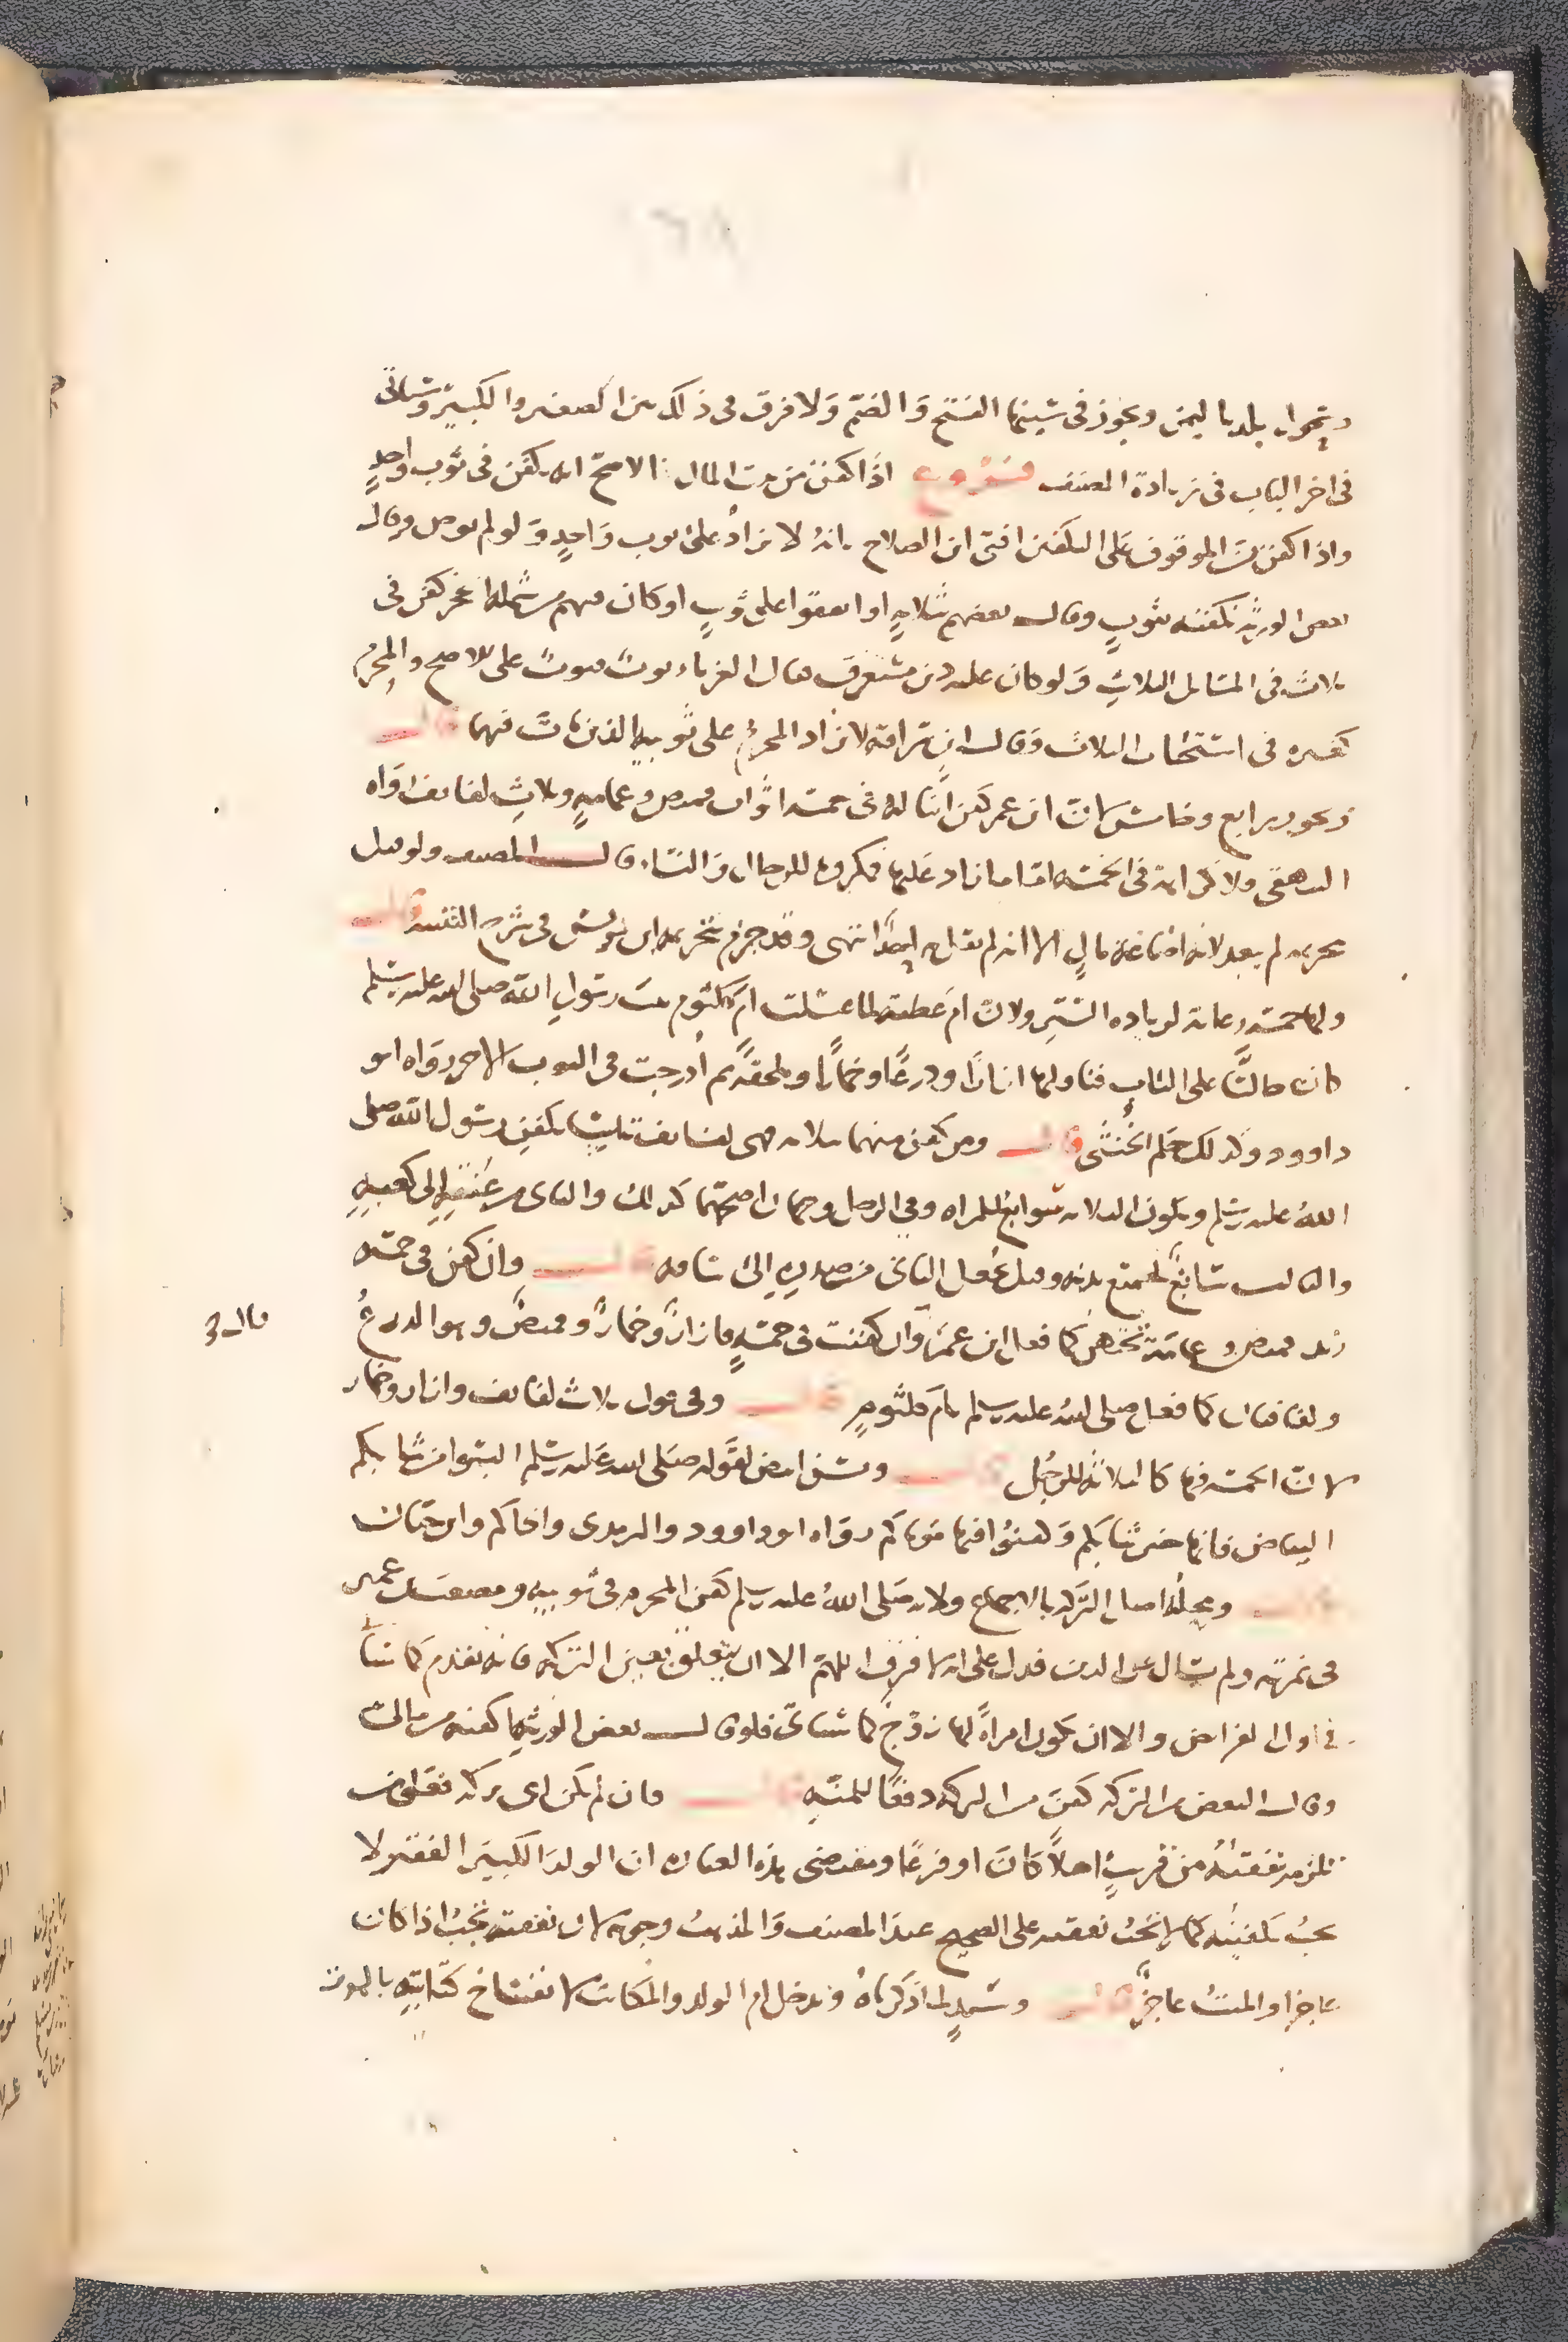 وسحول بلد باليمن ويجوز في سينها الفتح والضم ولا فرق في ذلك بين الصغير والكبير وسيأتي
في اخر الباب في زيادة المصنف فروع اذا كفن من بيت المال الاصح انه يكفن في ثوب واحد
واذا كفن من الموقوف على التكفين افتى ابن الصلاح بانه لا يزاد على ثوب واحد ولو لم يوص وقال
بعض الورثة نكفنه بثوب وقال بعضهم بثلاثة او اتفقوا على ثوب او كان فيهم كفن في
ثلاث في المسائل الثلاث ولو كان عليه دين مستغرق فقال الغرماء ثوب فثوب على الاصح والمحرم
كغيره في استحباب الثلاث وقال ابن سراقة لا يزاد المحرم على ثوبيه الذين مات فيهما قال
ويجوز رابع وخامس لان ابن عمر كفن ابنا له في خمسة اثواب قميص وعمامة وثلاث لفائف رواه
البيهقي ولا كراهة في الخمسة اما ما زاد عليها فمكروه للرجال والنساء قال المصنف ولو قيل
بتحريمه لم يبعد لانه اضاعة مال الا انه لم يقل به احد انتهى وقد جزم بتحريمه ابن يونس في شرح التنبيه قال
ولها خمسة رعاية لزيادة الستر ولان ام عطية لما غسلت ام كلثوم بنت رسول الله صلى الله عليه وسلم
كان جالسا على الباب فناولها ازارا ودرعا وخمارا وملحفة ثم أدرجت في الثوب الاخر رواه ابو
داوود وكذلك حكم الخنثى قال ومن كفن منهما بثلاثة فهي لفائف تأسيا بكفن رسول الله صلى
الله عليه وسلم وتكون الثلاثة سوابغ للمراة وفي الرجل وجهان اصحهما كذلك والثاني من عنقه الى كعبيه
والثالث سابغ لجميع بدنه وقيل يجعل الثاني من صدره الى ساقه قال وان كفن في خمسة
زيد قميص وعمامة تحتهن كما فعل ابن عمر وان كفنت في خمسة فازار وخمار وقميص وهو الدرع
ولفافتان كما فعل صلى الله عليه وسلم بام كلثوم قال وفي قول ثلاث لفائف وازار وخمار
لان الخمسة فيها كالثلاثة للرجل قال وسن ابيض لقوله صلى الله عليه وسلم البسوا من ثيابكم
البياض فانها خير ثيابكم وكفنوا فيها موتاكم رواه ابو داوود والترمذي والحاكم وابن حبان
قال ومحله اصل التركة بالاجماع ولانه صلى الله عليه وسلم كفن المحرم في ثوبيه ومصعب بن عمير
في نمرته ولم يسال عن الدين فدل على انه لا فرق اللهم الا ان يتعلق بعين التركة فانه يقدم كما سيأتي
في اول الفرائض والا ان تكون امراة لها زوج كما سيأتي فلو قال بعض الورثة انا اكفنه من مالي
وقال البعض من التركة كفن من التركة دفعا للمنة قال فان لم تكن اي تركة فعلى من
تلزمه نفقته من قريب اصلا كان او فرعا ومقتضى هذه العبارة ان الولد الكبير الفقير لا
يجب تكفينه كما لا تجب نفقته على الصحيح عند المصنف والمذهب وجوبه لان نفقته تجب اذا كان
عاجزا والميت عاجز قال وسيد لما ذكرناه ويدخل ام الولد والمكاتب لانفساخ كتابته بالموت